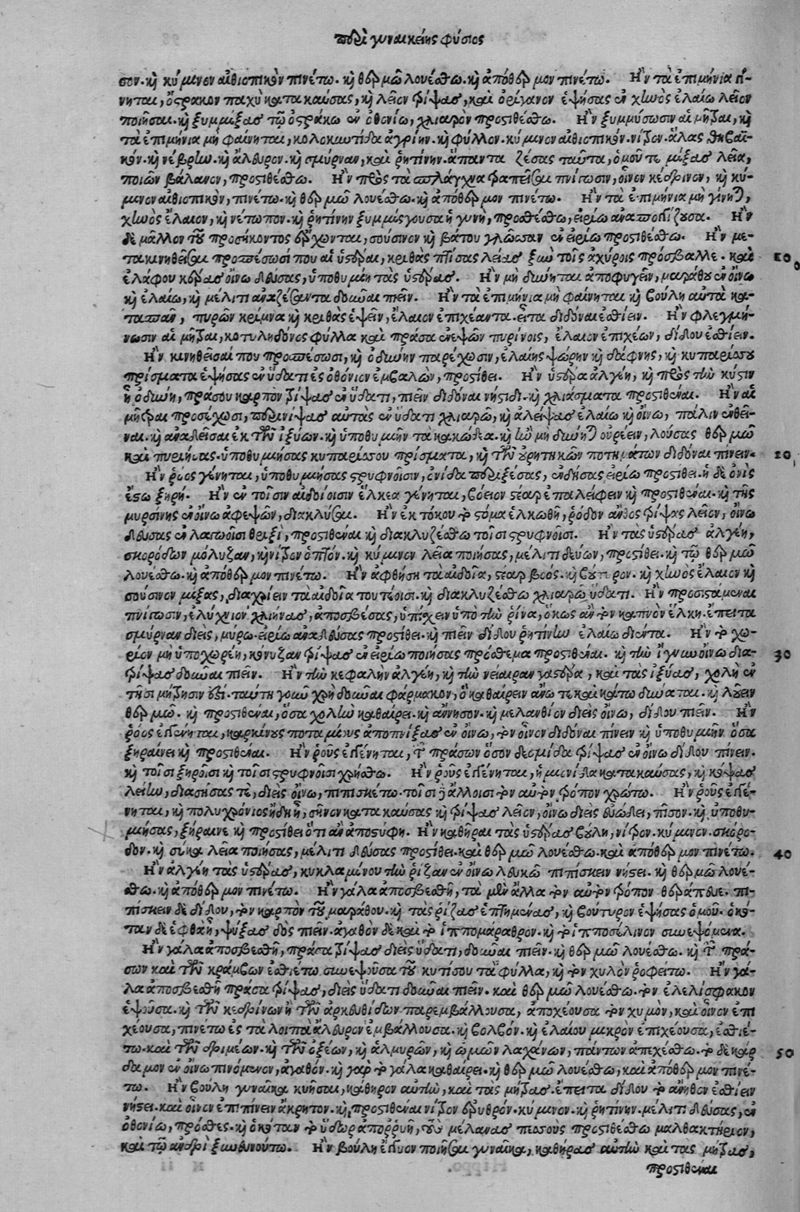 περὶ γυναικείης φύσιος
σον. καὶ κύμινον αἰθιοπικὸν πινέτω. καὶ θερμῷ λουέσθω. καὶ ἀπόθερμον πινέτω. Ἢν τὰ ἐπιμήνια γί-
νηται, ὄστρακον παχὺ κατακαύσας, καὶ λεῖον τρίψας, καὶ ὀρίγανον ἑψήσας ἐν χηνὸς ἐλαίω λεῖον
ποιῆσαι. καὶ ξυμμίξας τῷ ὀστράκω ἐν ὀθονίω, χλιαρὸν προστιθέτω. Ἢν ξυμμύσωσιν αἱ μῆτραι, καὶ
τὰ ἐπιμήνια μὴ φαίνηται, κολοκυντίδα ἀγρίην. καὶ φύλλον. κύμινον αἰθιοπικόν. νίτρον. ἅλας θηβαϊ-
κόν. καὶ ἄλευρον. καὶ σμύρναν, καὶ ῥητίνην. ἅπαντα ζέσας ταῦτα, ὁμοῦ τε μίξας λεῖα,
ποιῶν βάλανον, προστιθέσθω. Ἢν πρὸς τὰ σπλάγχνα οἶνον κέδρινον, καὶ κύ-
μινον αἰθιοπικὸν, πινέτω. καὶ θερμῷ λουέσθω. καὶ ἀπόθερμον πινέτω. Ἢν τὰ ἐπιμήνια μὴ γίνηται,
χηνὸς ἔλαιον, καὶ νέτωπον. καὶ ῥητίνην ξυμμίσγουσα ἡ γυνὴ, προσθέσθω, εἰρίω ἀνασπογγίζουσα. Ἢν
δὲ μᾶλλον τοῦ προσήκοντος ἔρχωνται, σούσινον καὶ βάτου γλῶσσαν ἐν εἰρίω προστιθέσθω. Ἢν με-
τακινηθεῖσαι προσπέσωσί που αἱ ὑστέραι, κριθὰς πτίσας λείας ἔξω τοῖς ἀχύροις πρόσβαλλε. καὶ 10
ἐλάφου κέρας οἴνω δεύσας, ὑποθυμίη τὰς ὑστέρας. Ἢν μὴ δύνηται ἀποφυγεῖν, μαράθου ἐν οἴνω
καὶ ἐλαίω, καὶ μέλιτι ἀναζέσαντα δοῦναι πιεῖν. Ἢν τὰ ἐπιμήνια μὴ φαίνηται, καὶ βούλῃ αὐτὰ κα-
τασπᾶν, πυρῶν κρίμνα καὶ κριθὰς ἕψειν, ἔλαιον ἐπιχέαντα. εἶτα διδόναι ἐσθίειν. Ἢν φλεγμή-
νωσιν αἱ μῆτραι, κοτυληδόνος φύλλα καὶ πράσα ἑψῶν πυρίνοις, ἔλαιον ἐπιχέων, δίδου ἐσθίειν.
Ἢν κινηθεῖσαί που προσπέσωσι, καὶ ὀδύνην παρέχωσιν, ἐλαίης ψώρην καὶ δάφνης, καὶ κυπαρίσσου
πρίσματα ἑψήσας ἐν ὕδατι ἐς ὀθόνιον ἐμβαλών, προστίθει. Ἢν ὑστέρα ἀλγέῃ, καὶ πρὸς τὴν κύστιν
ἡ ὀδύνη, πράσου καρπὸν τρίψας ἐν ὕδατι, πιεῖν διδόναι νήστιδι. καὶ χλιάσματα προστιθέναι. Ἢν αἱ
μῆτραι προσέχωσι, περινίψας αὐτὰς ἐν ὕδατι χλιαρῷ, καὶ ἀλείψας ἐλαίω καὶ οἴνω, πάλιν ἐνθεῖ-
ναι. καὶ ἀναδῆσαι ἐκ τῶν ἰξύων. καὶ ὑποθυμιῆν τὰ κακώδεα. καὶ ἢν μὴ δύνηται οὐρέειν, λούσας θερμῷ
καὶ πυριήσας. ὑποθυμιήσας κυπαρίσσου πρίσματα, καὶ τῶν οὐρητικῶν ποτημάτων διδόναι πίνειν. 20
Ἢν ῥόος γένηται, ὑποθυμιήσας στρυφνοῖσιν, ὀνίδα περιξέσας, ἐνδήσας εἰρίω προστίθει. ἡ δὲ ὀνὶς
ἔστω ξηρή. Ἢν ἐν τοῖσιν αἰδοίοισιν ἕλκεα γένηται, βόειον στέαρ ἐπαλείφειν καὶ προστιθέναι. καὶ τῆς
μυρσίνης ἐν οἴνω ἀφεψῶν, διακλύζεσθαι. Ἢν ἐκ τόκου τὸ στόμα ἑλκωθῇ, ῥόδον ἄνθος τρίψας λεῖον, οἴνω
δεύσας προστιθέναι καὶ διακλυζέσθω τοῖσι στρυφνοῖσι. Ἢν τὰς ὑστέρας ἀλγέῃ,
σκορόδων μώλυζαν, καὶ νίτρον ὀπτόν. καὶ κύμινον λεῖα ποιήσας, μέλιτι δεύων, προστίθει. καὶ τῷ θερμῷ
λουέσθω. καὶ ἀπόθερμον πινέτω. Ἢν ἀφθήσῃ τὰ αἰδοῖα, στέαρ βοός. καὶ βούτυρον. καὶ χηνὸς ἔλαιον καὶ
σούσινον μίξας, διαχρίειν τὰ αἰδοῖα τουτέοισι. καὶ διακλυζέσθω χλιαρῷ ὕδατι. Ἢν προσιστάμεναι
πνίγωσιν, ἐλύχνιον χλιήνας, ἀποσβέσας, ὑπίσχειν ὑπὸ τὴν ῥῖνα, ὅκως ἂν τὸν καπνὸν ἕλκῃ. ἔπειτα
σμύρναν διεὶς, μύρω. εἰρίω ἀναδεύσας προστίθει. καὶ πιεῖν δίδου ῥητίνην ἐλαίω διέντα. Ἢν τὸ χω-
ρίον μὴ ὑποχωρέῃ, κόνυζαν τρίψας ἐν εἰρίω ποιήσας πρόσθεμα προστιθέναι. καὶ τὴν ἐν οἴνω δια- 30
τρίψας δοῦναι πιεῖν. Ἢν τὴν κεφαλὴν ἀλγέῃ, καὶ τὴν νείαιραν γαστέρα, καὶ τὰς ἰξύας, χολὴ ἐν
τῇσι μήτρῃσίν ἐστι. ταύτῃ γοῦν χρὴ δοῦναι φάρμακον, ὃ καθαίρειν ἄνω τε καὶ κάτω δύναται. καὶ λούειν
θερμῷ. καὶ προστιθέναι, ὅσα χολὴν καθαίρει. καὶ ἄννησον. καὶ μελάνθιον διεὶς οἴνω, δίδου πιεῖν. Ἢν
ῥόος ἐπιγένηται, καρκίνους ποταμίους ἀποπνίξας ἐν οἴνω, τὸν οἶνον διδόναι πίνειν καὶ ὑποθυμιῆν ὅσα
ξηραίνει καὶ προστιθέναι. Ἢν ῥοῦς ἐπιγένηται, τῶν πράσων ὅσον δεσμίδα τρίψας ἐν οἴνω δίδου πίνειν.
καὶ τοῖσι ξηροῖσι καὶ τοῖσι στρυφνοῖσι χρήσθω. Ἢν ῥοῦς ἐπιγένηται, κατακαύσας, καὶ κόψας
λείην, διασήσας τε, διεὶς οἴνω, πιπισκέτω. τοῖσί τε ἄλλοισι τὸν αὐτὸν τρόπον χρήτω. Ἢν ῥοῦς ἐπιγέ-
νηται, καὶ πολυχρόνιος ἤδη ᾖ, κατακαύσας καὶ τρίψας λεῖον, οἴνω διεὶς πῖσον. καὶ ὑποθυ-
μιήσας, ξήραινε καὶ προστίθει ὅ τι ἂν ἀποστύφῃ. Ἢν καθῆραι τὰς ὑστέρας βούλῃ, νίτρον. κύμινον. σκόρο-
δον. καὶ σῦκα λεῖα ποιήσας, μέλιτι δεύσας προστίθει. καὶ θερμῷ λουέσθω. καὶ ἀπόθερμον πινέτω. 40
Ἢν ἀλγέῃ τὰς ὑστέρας, κυκλαμίνου τὴν ῥίζαν ἐν οἴνω λευκῷ πιπίσκειν νήστει. καὶ θερμῷ λουέ-
σθω. καὶ ἀπόθερμον πινέτω. Ἢν γάλα ἀποσβεσθῇ, τὰ μὲν ἄλλα τὸν αὐτὸν τρόπον θεράπευε. πι-
πίσκειν δὲ δίδου, τὸν καρπὸν τοῦ μαράθου. καὶ τὰς ῥίζας ἐπτισμένας, καὶ βούτυρον ἑψήσας ὁμοῦ. ὁκό-
ταν δὲ ἑφθῇ, ψύξας δὸς πιεῖν. ἀγαθὸν δὲ καὶ τὸ ἱππομάραθρον. καὶ τὸ ἱπποσέλινον συνεψόμενα.
Ἢν γάλα ἀποσβεσθῇ, πράσα τρίψας διεὶς ὕδατι, δοῦναι πιεῖν. καὶ θερμῷ λουέσθω. καὶ τῶν πρά-
σων καὶ τῶν κραμβῶν ἐσθιέτω συνεψοῦσα τοῦ κυτίσου τὰ φύλλα, καὶ τὸν χυλὸν ῥοφείτω. Ἢν γά-
λα ἀποσβεσθῇ πράσα τρίψας, διεὶς ὕδατι δοῦναι πιεῖν. καὶ θερμῷ λουέσθω. τὸν ἐλελίσφακον
ἑψοῦσα. καὶ τῶν κεδρίνων ἢ τῶν ἀρκευθίδων παρεμβάλλουσα, ἀποχέουσα τὸν χυμὸν, καὶ οἶνον ἐπι
χέουσα, πινέτω ἐς τὰ λοιπὰ ἄλευρον ἐμβάλλουσα. καὶ βολβόν. καὶ ἐλαίου μικρὸν ἐπιχέουσα, ἐσθιέ-
τω. καὶ τῶν δριμέων. καὶ τῶν ὀξέων, καὶ ἁλμυρῶν, καὶ ὠμῶν λαχάνων, πάντων ἀπεχέσθω. τὸ δὲ κάρ 50
δαμον ἐν οἴνω πινόμενον, ἀγαθόν. καὶ γὰρ τὸ γάλα καθαίρει. καὶ θερμῷ λουέσθω, καὶ ἀπόθερμον πινέ-
τω. Ἢν βούλῃ γυναῖκα κυῆσαι, κάθηρον αὐτὴν, καὶ τὰς μήτρας. ἔπειτα δίδου τὸ ἄνηθον ἐσθίειν
νήστει. καὶ οἶνον ἐπιπίνειν ἄκρητον. καὶ προστιθέναι νίτρον ἐρυθρόν. κύμινον. καὶ ῥητίνην. μέλιτι δεύσας, ἐν
ὀθονίω, πρόσθες. καὶ ὁκόταν τὸ ὕδωρ ἀπορρυῇ, τοὺς μέλανας πεσσοὺς προστιθέσθω μαλθακτήριον,
καὶ τῷ ἀνδρὶ ξυνευνούτω. Ἢν βούλῃ ἔγκυον ποιῆσαι γυναῖκα, καθήρας αὐτὴν καὶ τὰς μήτρας,
προστιθέναι